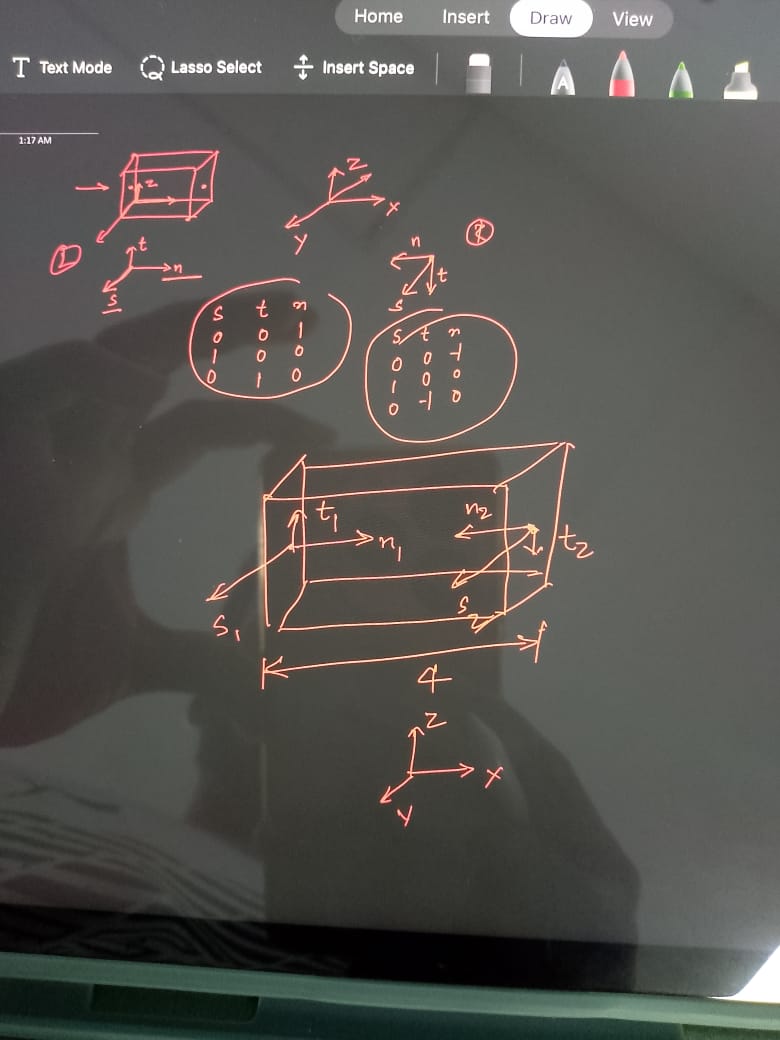 Home Insert Draw View
Text Mode Lasso Select Insert Space
A
1:17 AM
z
z
x
y
1
t
n
s
n
t
s
s t n
0 0 1
1 0 0
0 1 0
s t n
0 0 -1
1 0 0
0 -1 0
t1
n1
s1
n2
t2
s2
4
z
x
y